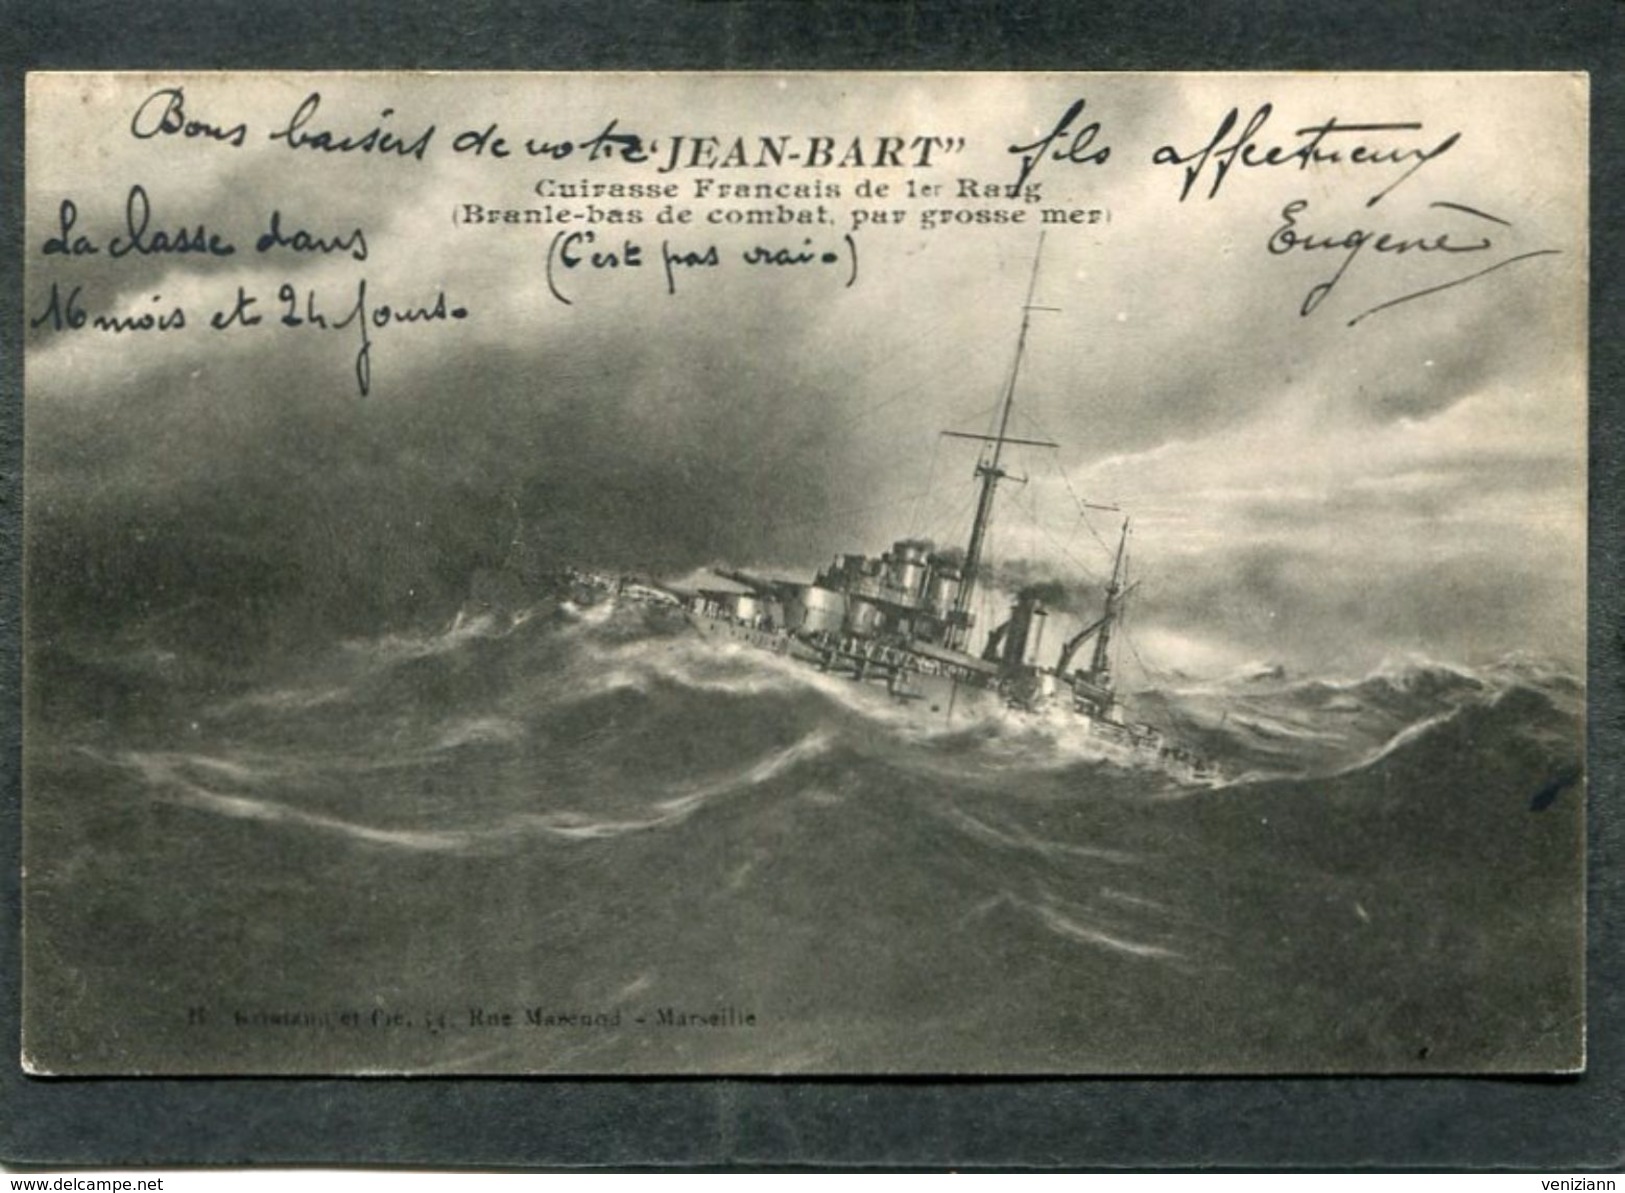 Bons baisers de votre fils affectueux
Eugène
"JEAN-BART"
Cuirasse Francais de 1er Rang
(Branle-bas de combat, par grosse mer)
(C'est pas vrai.)
La classe dans
16 mois et 24 jours.
et Cie, 54, Rue - Marseille
delcampe.net
veniziann